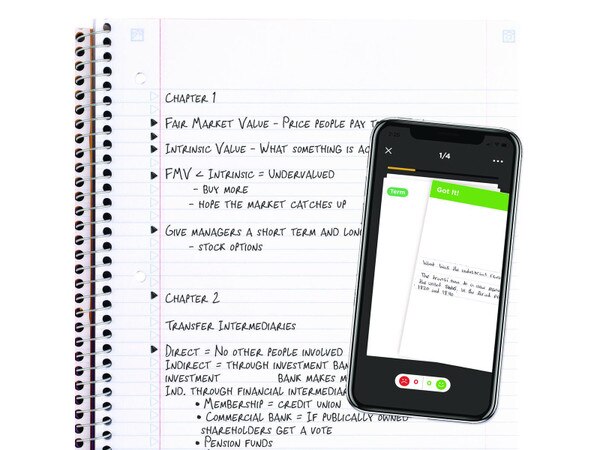 CHAPTER 1
FAIR MARKET VALUE - PRICE PEOPLE PAY
INTRINSIC VALUE - WHAT SOMETHING IS
FMV < INTRINSIC = UNDERVALUED
- BUY MORE
- HOPE THE MARKET CATCHES UP
GIVE MANAGERS A SHORT TERM AND
- STOCK OPTIONS
CHAPTER 2
TRANSFER INTERMEDIARIES
DIRECT = NO OTHER PEOPLE INVOLVED
INDIRECT = THROUGH INVESTMENT
INVESTMENT BANK MAKES
IND. THROUGH FINANCIAL
• MEMBERSHIP = CREDIT UNION
• COMMERCIAL BANK = IF PUBLICALLY OWNED
SHAREHOLDERS GET A VOTE
• PENSION FUNDS
2:25
1/4
Term
Got it!
What was the industrial
The transition to a new
1820 and 1840
0 0